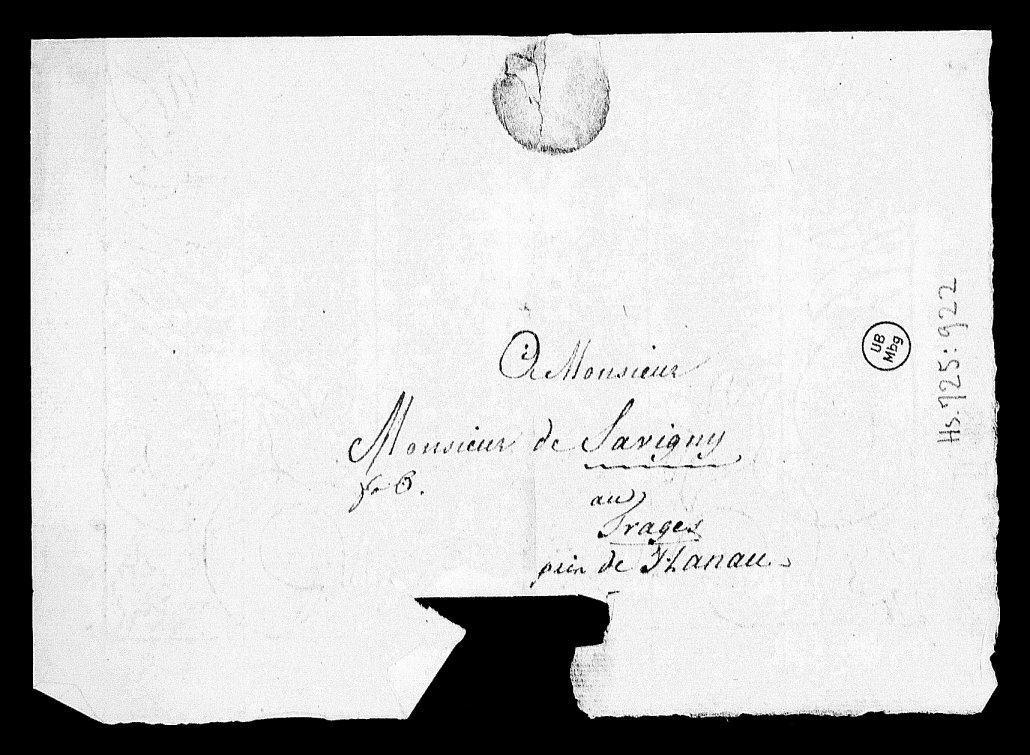 à Monsieur
Monsieur de Savigny
au
Trages
de Hanau.
UB
Mbg
Hs. 725: 922